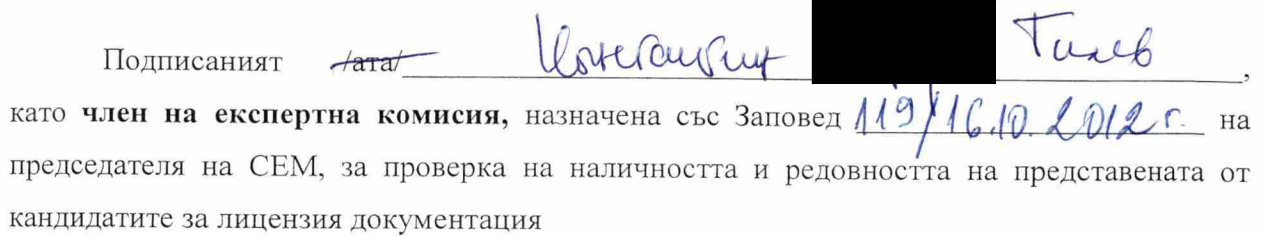 Подписаният /ата/ Константин Тилев,
като член на експертна комисия, назначена със Заповед 119/16.10.2012 г. на
председателя на СЕМ, за проверка на наличността и редовността на представената от
кандидатите за лицензия документация